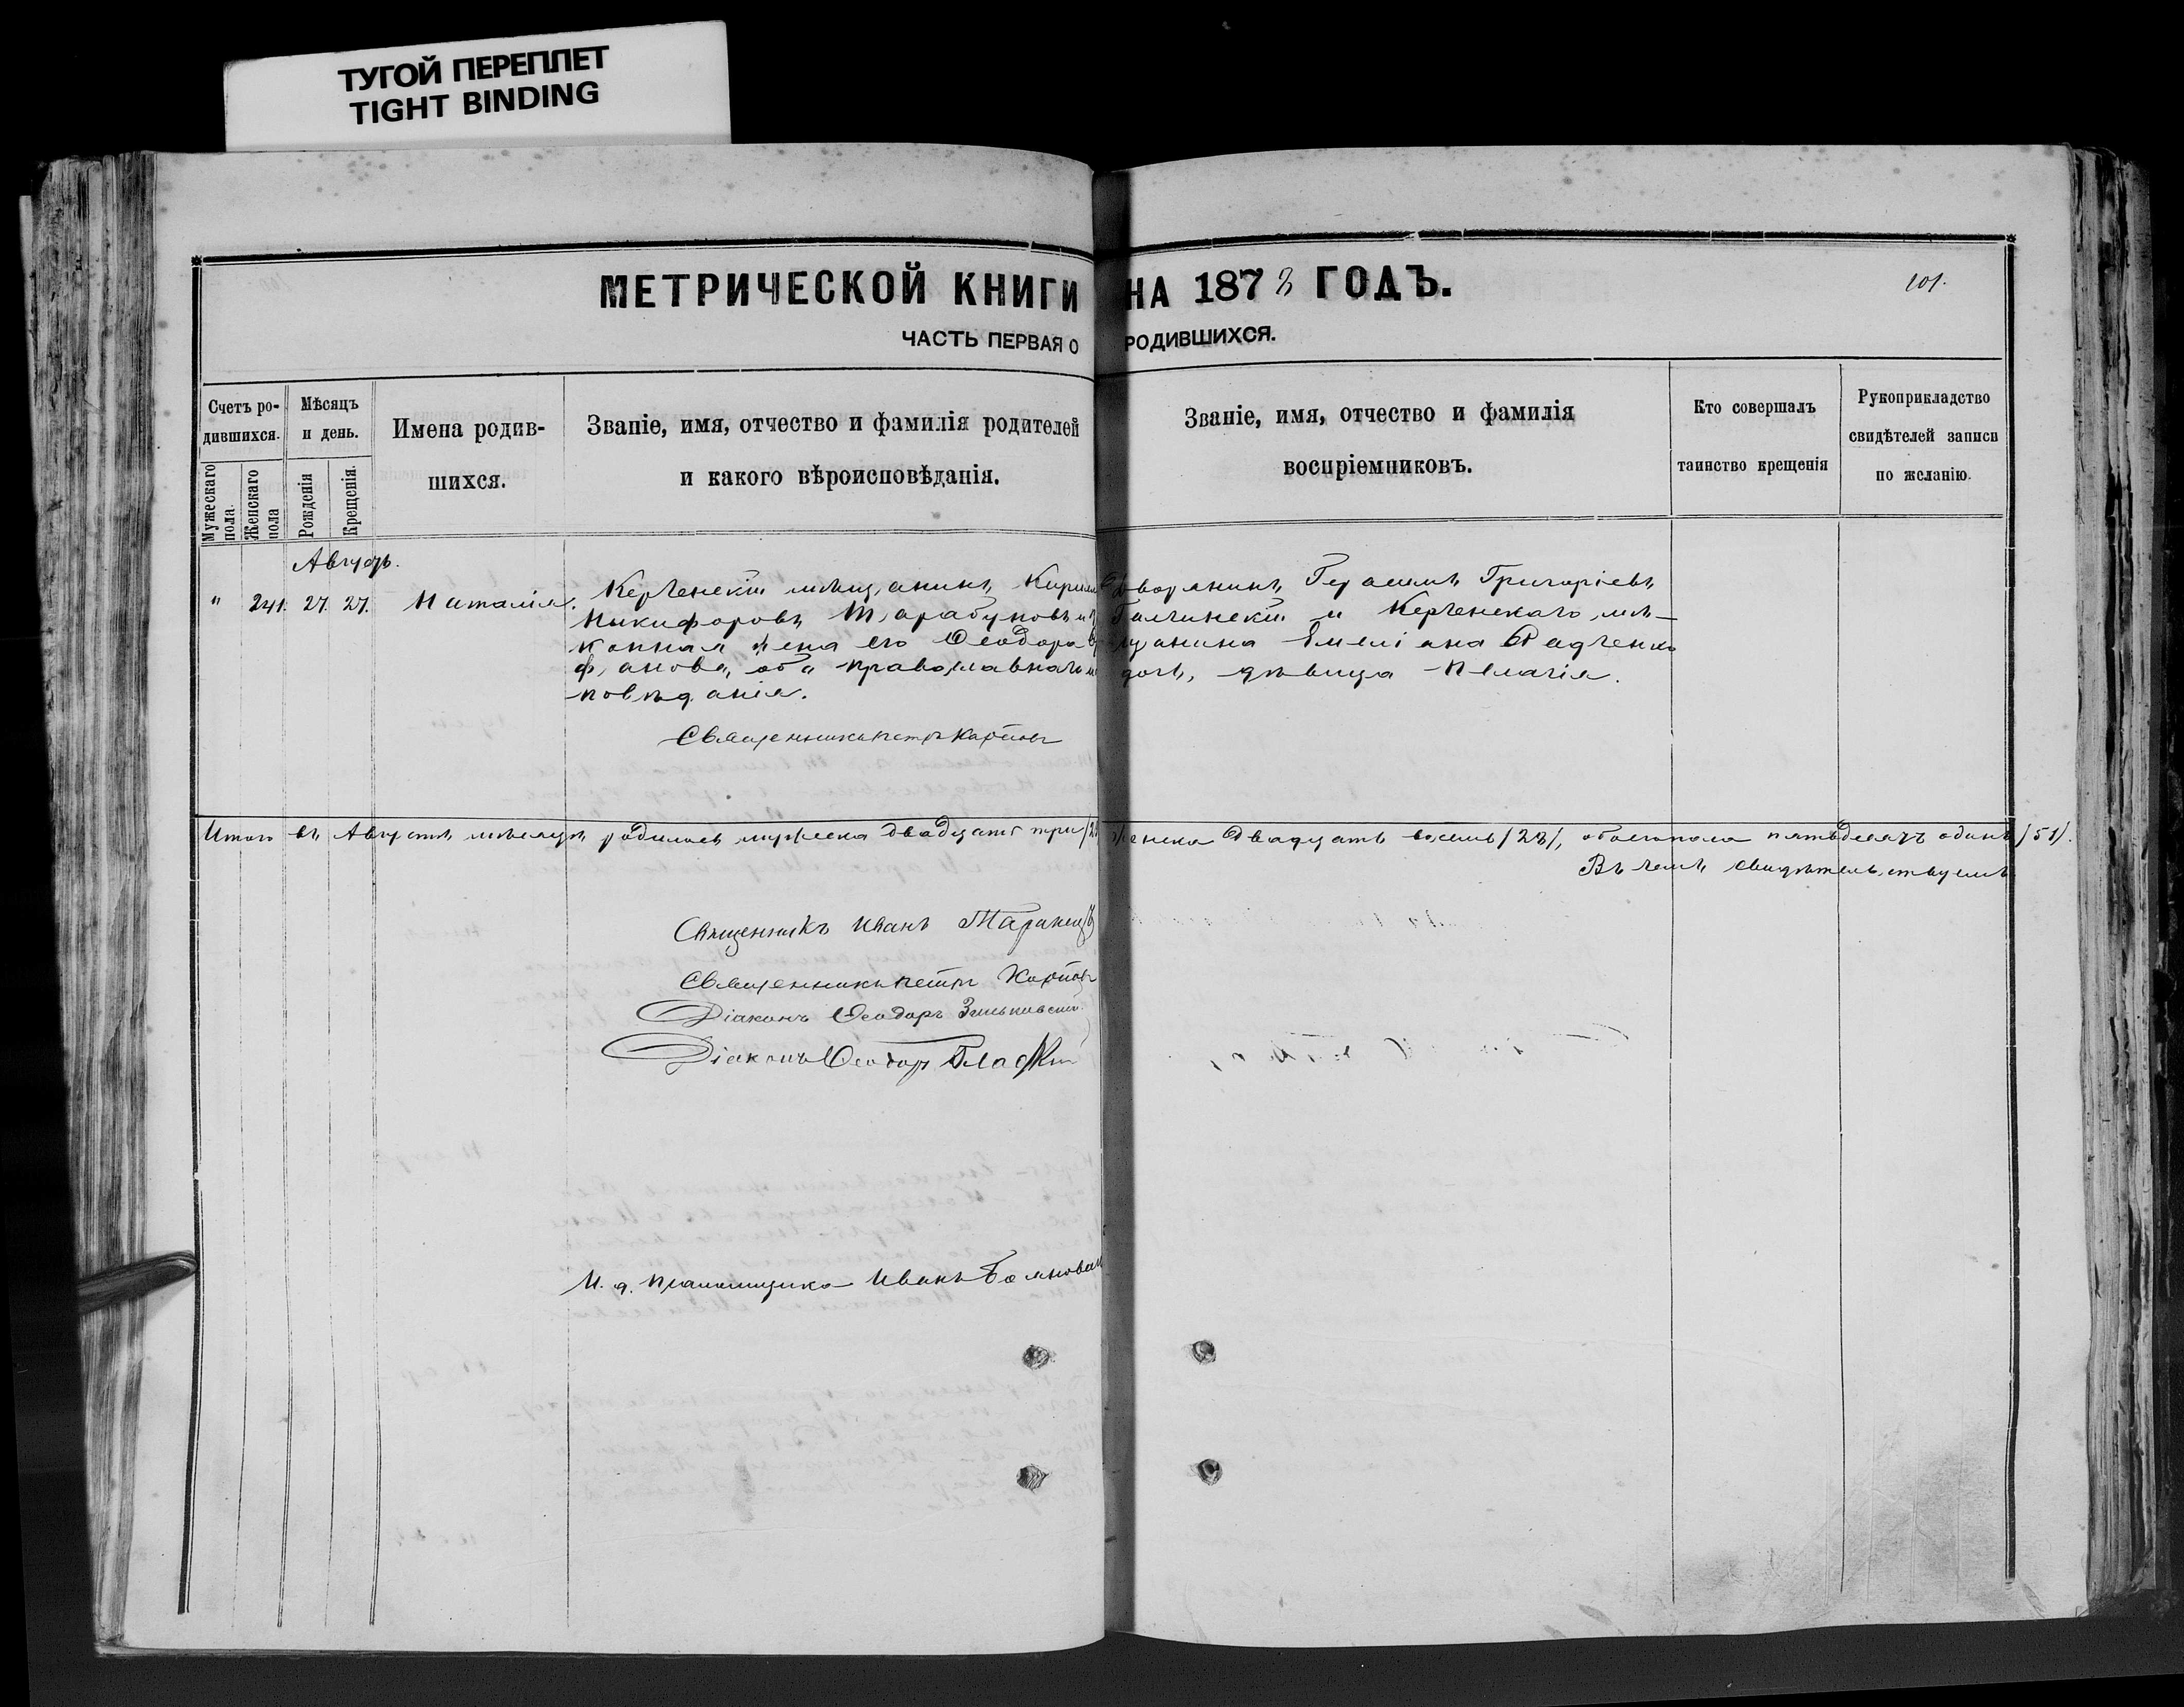 ТУГОЙ ПЕРЕПЛЕТ
TIGHT BINDING
МЕТРИЧЕСКОЙ КНИГИ НА 1873 ГОДЪ.
101.
ЧАСТЬ ПЕРВАЯ О РОДИВШИХСЯ.
Счетъ ро-
дившихся.
Мужескаго пола.
Женскаго пола
Мѣсяцъ
и день.
Рожденія
Крещенія.
Имена родив-
шихся.
Званіе, имя, отчество и фамилія родителей
и какого вѣроисповѣданія.
Званіе, имя, отчество и фамилія
воспріемниковъ.
Кто совершалъ
таинство крещенія
Рукоприкладство
свидѣтелей записи
по желанію.
Августъ.
" 241. 27. 27. Наталія.
Керченскій мѣщанинъ Кирил
Никифоровъ Тарабуновъ и
конная жена его Феодора
фанова, оба православнаго
повѣданія.
Священникъ Петръ Карповъ
Дворянинъ Герасимъ Григоріевъ
и Керченскаго мѣ-
щанина Емеліана Радченко
дочь, дѣвица Пелагія.
Итого въ Августѣ мѣсяцѣ родилось мужеска двадцать три женска двадцать восемь /28/, обоего пола пятьдесятъ одинъ /51/.
Въ чемъ свидѣтельствуемъ
Священникъ Иванъ
Священникъ Петръ Карповъ
Діаконъ Феодоръ Зеньковскій
Діаконъ Феодоръ
И. д. псаломщика Иванъ